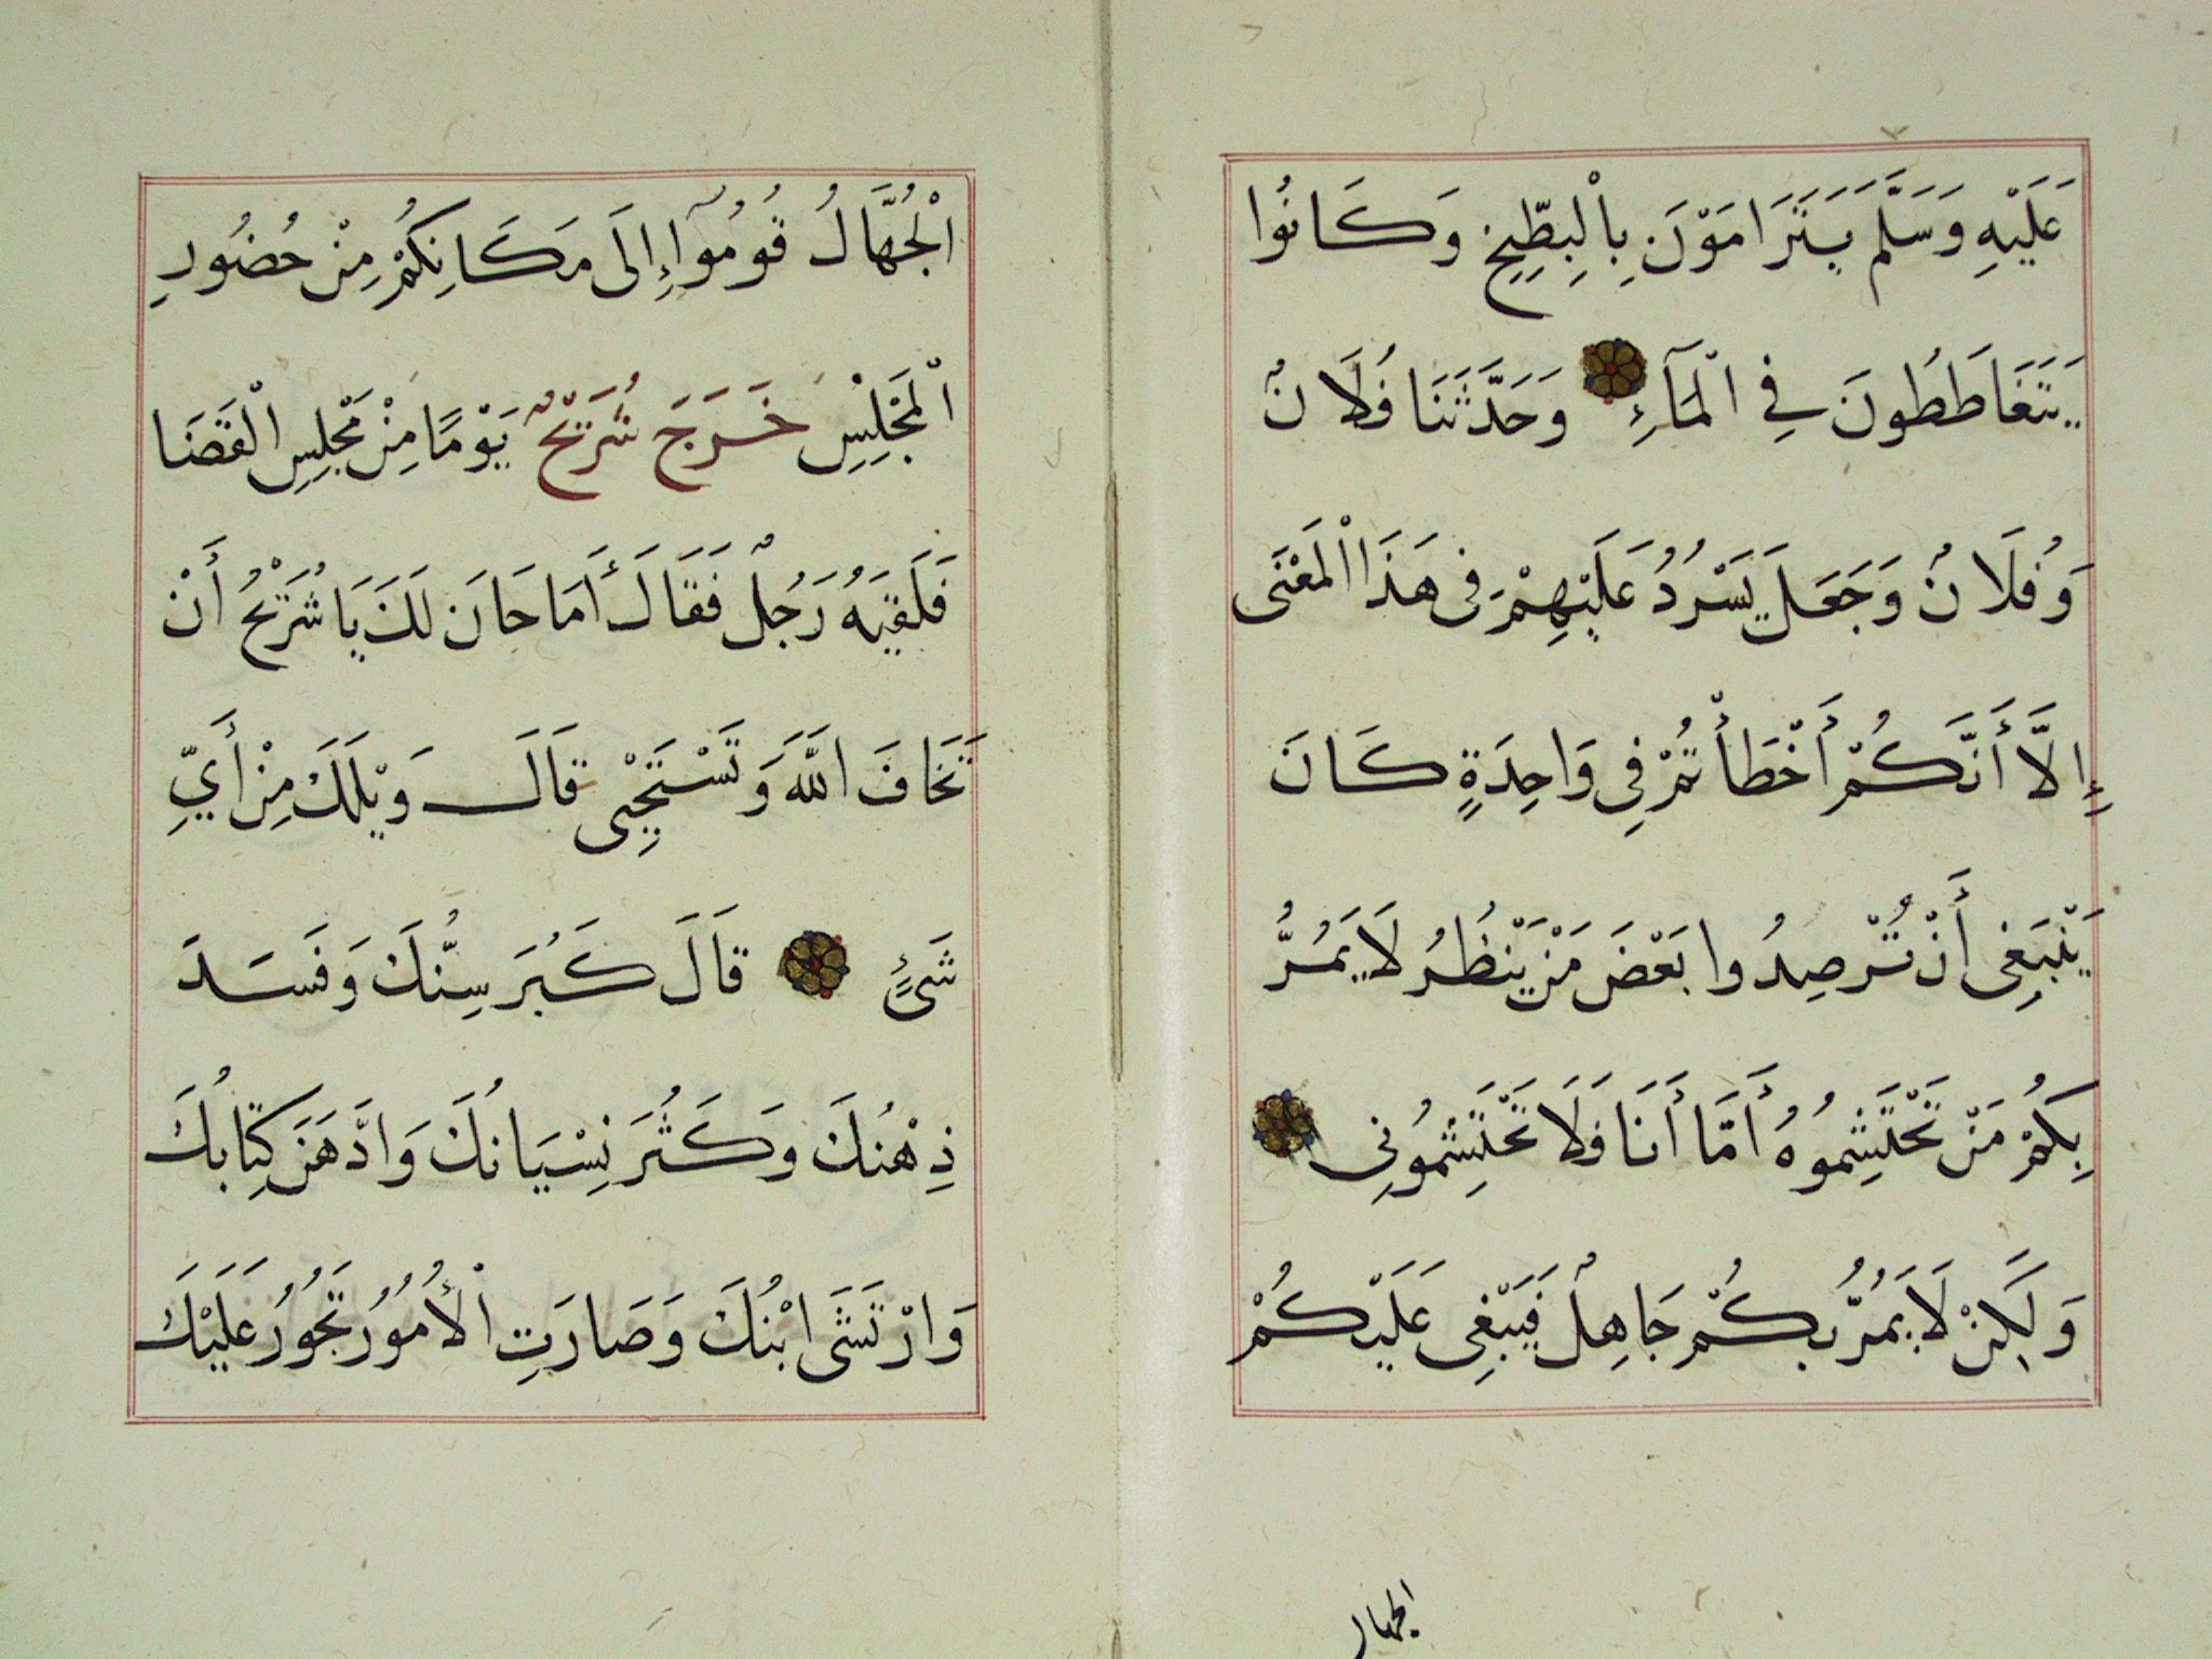 عَلَيْهِ وَسَلَّمَ يَتَرَامَوْنَ بِالْبِطِّيخِ وَكَانُوا
يَتَغَاطَطُونَ فِي الْمَآءِ وَحَدَّثَنَا فُلَانٌ
وَفُلَانٌ وَجَعَلَ يَسْرُدُ عَلَيْهِمْ فِى هَذَا الْمَعْنَى
إِلَّا أَنَّكُمْ أَخْطَأْتُمْ فِي وَاحِدَةٍ كَانَ
يَنْبَغِى أَنْ تُرْصِدُوا بَعْضَ مَنْ يَنْظُرُ لَا يَمُرُّ
بِكُمْ مَنْ تَحْتَشِمُوهُ أَمَّا أَنَا فَلَا تَحْتَشِمُونِى
وَلَكِنْ لَا يَمُرُّ بِكُمْ جَاهِلٌ فَيَبْغِى عَلَيْكُمْ
الجهال
الْجُهَّالُ قُومُوآ إِلَى مَكَانِكُمْ مِنْ حُضُورِ
الْمَجْلِسِ خَرَجَ شُرَيْحٌ يَوْمًا مِنْ مَجْلِسِ الْقَضَا
فَلَقِيَهُ رَجُلٌ فَقَالَ أَمَا حَانَ لَكَ يَا شُرَيْحُ أَنْ
تَخَافَ اللَّهَ وَتَسْتَحْيِى قَالَ وَيْلَكَ مِنْ أَيِّ
شَىْءٍ قَالَ كَبُرَ سِنُّكَ وَفَسَدَ
ذِهْنُكَ وَكَثُرَ نِسْيَانُكَ وَادَّهَنَ كِتَابُكَ
وَارْتَشَى ابْنُكَ وَصَارَتِ الْأُمُورُ تَجُورُ عَلَيْكَ